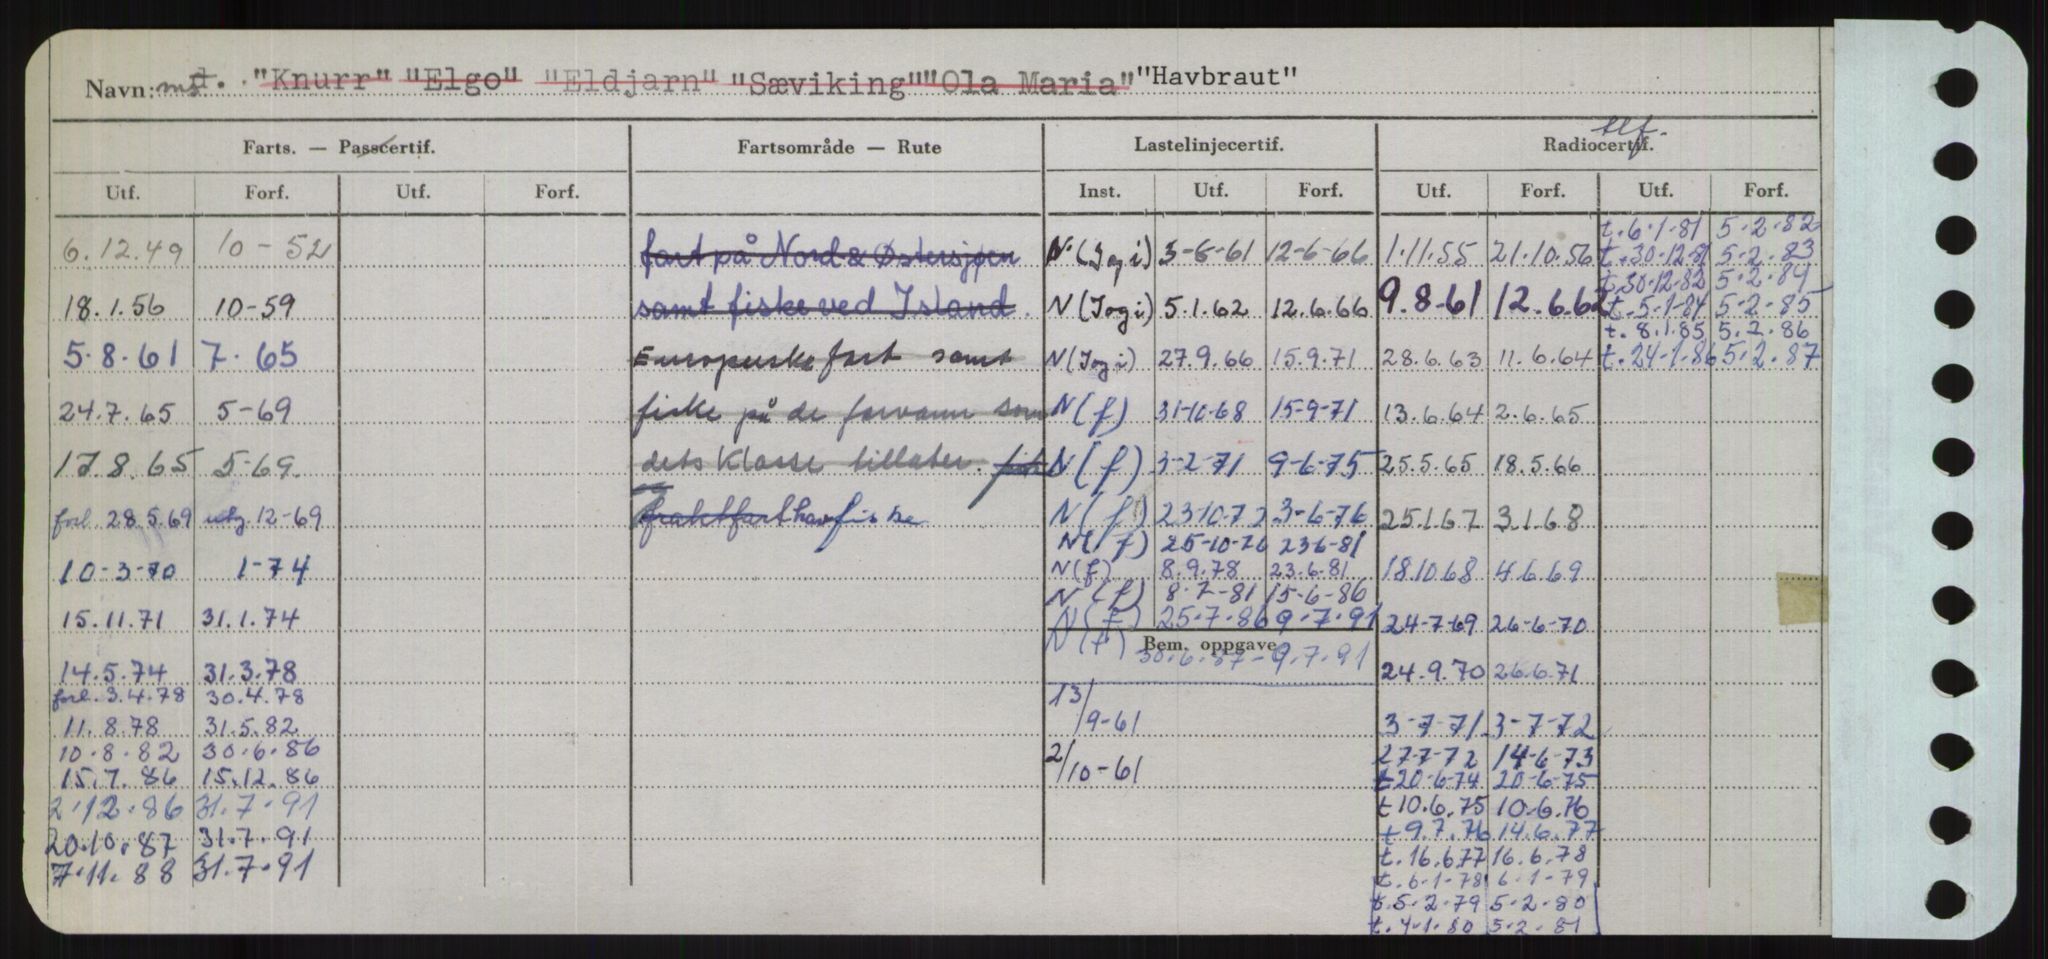 Navn: ms. "Knurr" "Elgo" "Eldjarn" "Sæviking" "Ola Maria" "Havbraut"
Farts. — Passcertif. Fartsområde — Rute Lastelinjecertif. Radiocertif. tlf.
Utf. Forf. Utf. Forf. Inst. Utf. Forf. Utf. Forf. Utf. Forf.
t. 6.1.81 5.2.82
6.12.49 10-52 fart på Nord & Østersjøen N (Jog i) 3-6-61 12-6-66 1.11.55 21.10.56 t. 30.12.81 5.2.83
t. 30.12.82 5.2.84
18.1.56 10-59 samt fiske ved Island. N (Jog i) 5.1.62 12.6.66 9.8-61 12.6.62 t. 5.1.84 5.2.85
t. 8.1.85 5.2.86
5.8.61 7.65 Europeiske fart samt N (Jog i) 27.9.66 15.9.71 28.6.63 11.6.64 t. 24.1.86 5.2.87
24.7.65 5-69 fiske på de farvann som N (f) 31-10-68 15-9-71 13.6.64 2.6.65
17.8.65 5-69. dets Klasse tillater. N (f) 3-2-71 9-6-75 25.5.65 18.5.66
forl. 28.5.69 utg. 12-69 fraktfart havfiske N (f) 23-10-72 3-6-76 25.1.67 3.1.68
N (f) 25-10-76 23-6-81
10-3-70 1-74 N (f) 8.9.78 23.6.81 18.10.68 4.6.69
N (f) 8.7-81 15-6-86
15.11.71 31.1.74 N (f) 25.7.86 9.7.91 24-7-69 26-6-70
Bem. oppgave
N (f) 30.6.87-9.7.91
14.5.74 31.3.78 24.9.70 26.6.71
forl. 3.4.78 30.4.78 13/9-61
11.8.78 31.5.82 3-7-71 3-7-72
10.8.82 30.6.86 2/10-61 27-7-72 14-6-73
15.7.86 15.12.86 t 20-6-74 20-6-75
2.12.86 31.7.91 t 10.6.75 10.6.76
20.10.87 31.7.91 t 9.7.76 14.6.77
7.11.88 31.7.91 t. 16.6.77 16.6.78
t. 6-1-78 6-1-79
t. 5.2.79 5.2.80
t. 4.1.80 5.2.81